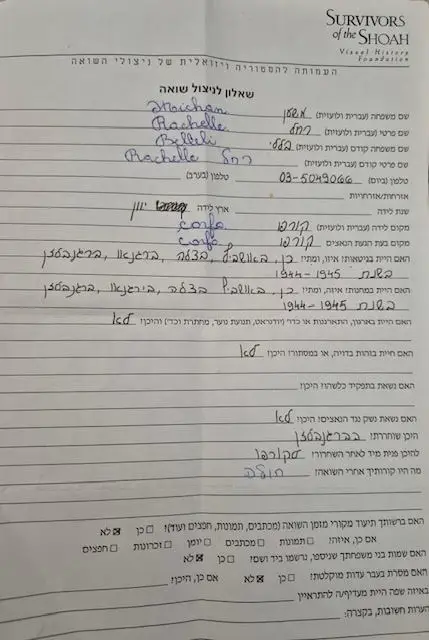 SURVIVORS
of the SHOAH
Visual History
Foundation
העמותה להיסטוריה ויזואלית של ניצולי השואה
שאלון לניצול שואה
שם משפחה (עברית ולועזית) משען Moichan
שם פרטי (עברית ולועזית) רחל Rachelle
שם משפחה קודם (עברית ולועזית) בללי Belleli
שם פרטי קודם (עברית ולועזית) רחל Rachelle
טלפון (ביום) 03-5049066 טלפון (בערב)
אזרחות/אזרחויות
שנת לידה ארץ לידה יוון
מקום לידה (עברית ולועזית) קורפו Corfo
מקום בעת הגעת הנאצים קורפו Corfo
האם היית בגיטאות? איזו, ומתי? כן, באושביץ, בצלה, ברגנאו, ברגנבלזן
בשנת 1944-1945
האם היית במחנות? איזו, ומתי? כן, באושביץ, בצלה, בירגנאו, ברגנבלזן
בשנת 1944-1945
האם היית בארגון, התארגנות או כדו' (יודנראט, תנועת נוער, מחתרת וכד') והיכן? לא
האם חיית בזהות בדויה, או במסתור? היכן? לא
האם נשאת בתפקיד כלשהו? היכן?
האם נשאת נשק נגד הנאצים? היכן? לא
היכן שוחררת? בברגנבלזן
להיכן פנית מיד לאחר השחרור? לקורפו
מה היו קורותיך אחרי השואה? חולה
האם ברשותך תיעוד מקורי מזמן השואה (מכתבים, תמונות, חפצים ועוד)? ☐ כן ☒ לא
אם כן, איזה? ☐ תמונות ☐ מכתבים ☐ יומן ☐ זכרונות ☐ חפצים
האם שמות בני משפחתך שניספו, נרשמו ביד ושם? ☐ כן ☒ לא
האם מסרת בעבר עדות מוקלטת? ☐ כן ☒ לא אם כן, היכן?
באיזה שפה היית מעדיף/ה להתראיין
הערות חשובות, בקצרה: